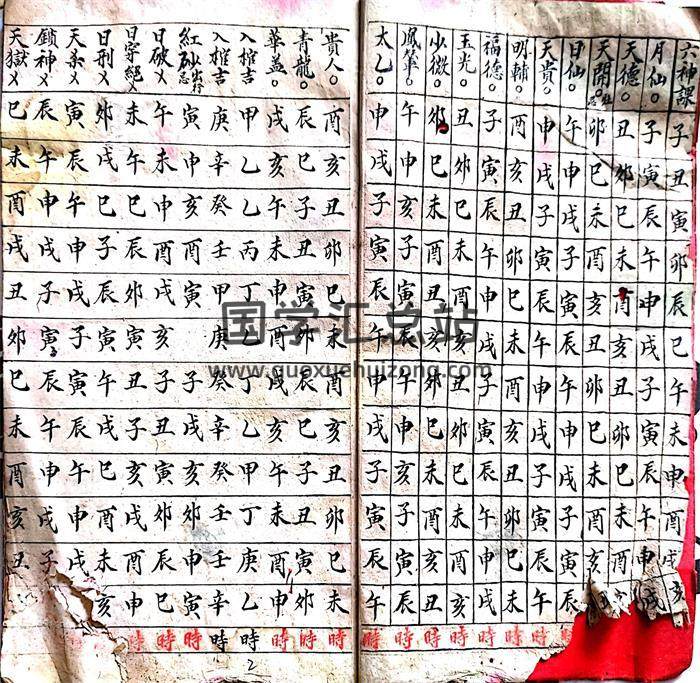 六神課 子丑寅卯辰巳午未申酉戌亥
月仙。 子寅辰午申戌子寅辰午申戌
天德。 丑卯巳未酉亥丑卯巳未酉亥
天開。 卯巳未酉亥丑卯巳未酉亥
日仙。 午申戌子寅辰午申戌子寅辰
天貴。 申戌子寅辰午申戌子寅辰午時
明輔。 酉亥丑卯巳未酉亥丑卯巳未時
福德。 子寅辰午申戌子寅辰午申戌時
玉光。 丑卯巳未酉亥丑卯巳未酉亥時
少微。 卯巳未酉丑亥卯巳未酉亥丑時
鳳輦。 午申亥子寅辰午申亥子寅辰時
太乙。 申戌子寅辰午申戌子寅辰午時
貴人。 酉亥丑卯巳未酉亥丑卯巳未時
青龍。 辰巳子丑寅卯辰巳子丑寅卯時
華蓋。 戌亥午未申酉戌亥午未酉申時
入棺吉 甲乙乙丙丁乙丁乙甲丁庚乙時
入棺吉 庚辛癸壬甲庚癸辛癸壬壬辛時
紅砂 出行忌 寅申亥酉寅子戌亥卯申寅時
日破乄 午未申酉戌亥子丑寅卯辰巳時
日穿絕乄 未午巳辰卯寅丑子亥戌酉申時
日刑乄 卯戌巳子辰寅午戌巳卯未亥
天殺乄 寅辰午申戌子寅辰午申戌
鎖神乄 辰午申戌子寅辰午申戌子
天獄乄 巳未酉戌丑卯巳未酉亥丑
2
国学汇总站
www.guoxuehuizong.com